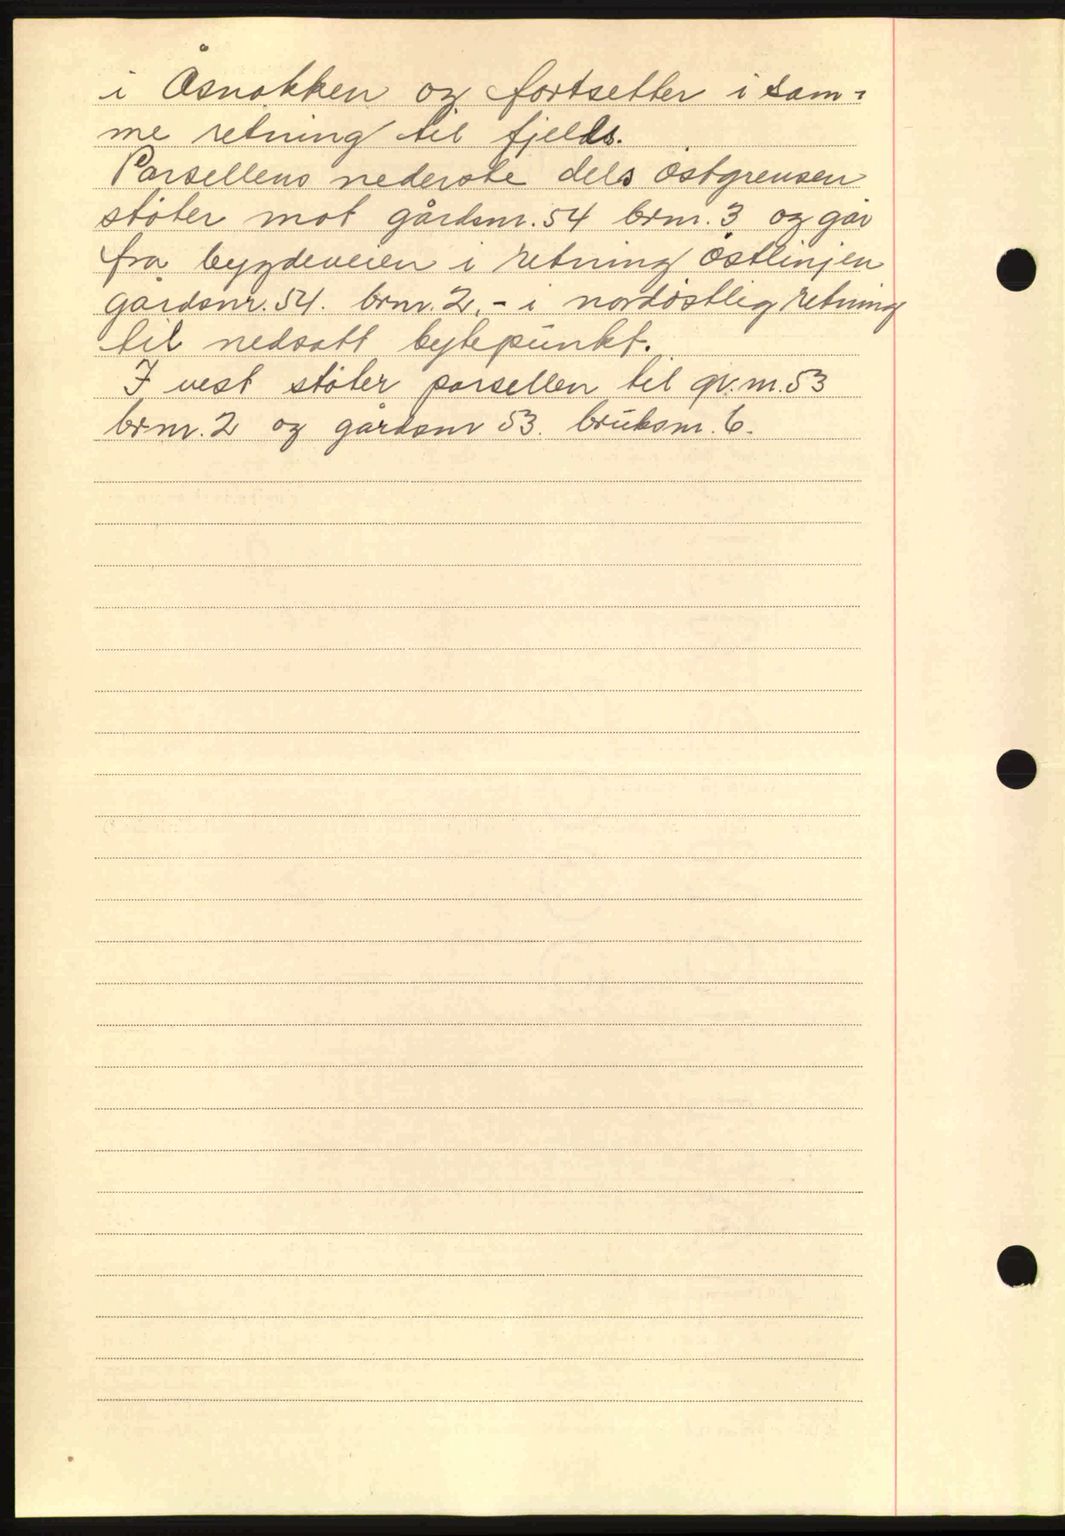 i Åsnakken og fortsetter i sam=
me retning til fjells.
Parsellens nederste dels östgrensen
støter mot gårdsnr. 54 brnr. 3 og går
fra bygdeveien i retning østlinjen
gårdsnr. 54. brnr. 2, - i nordøstlig retning
til nedsatt bytepunkt.
I vest støter parsellen til gr.nr. 53
brnr. 2 og gårdsnr 53. bruksnr. 6.